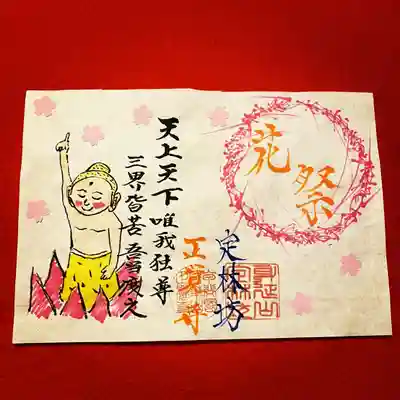 花祭
定林坊
正覚尊
天上天下唯我独尊
三界皆苦 吾当度之